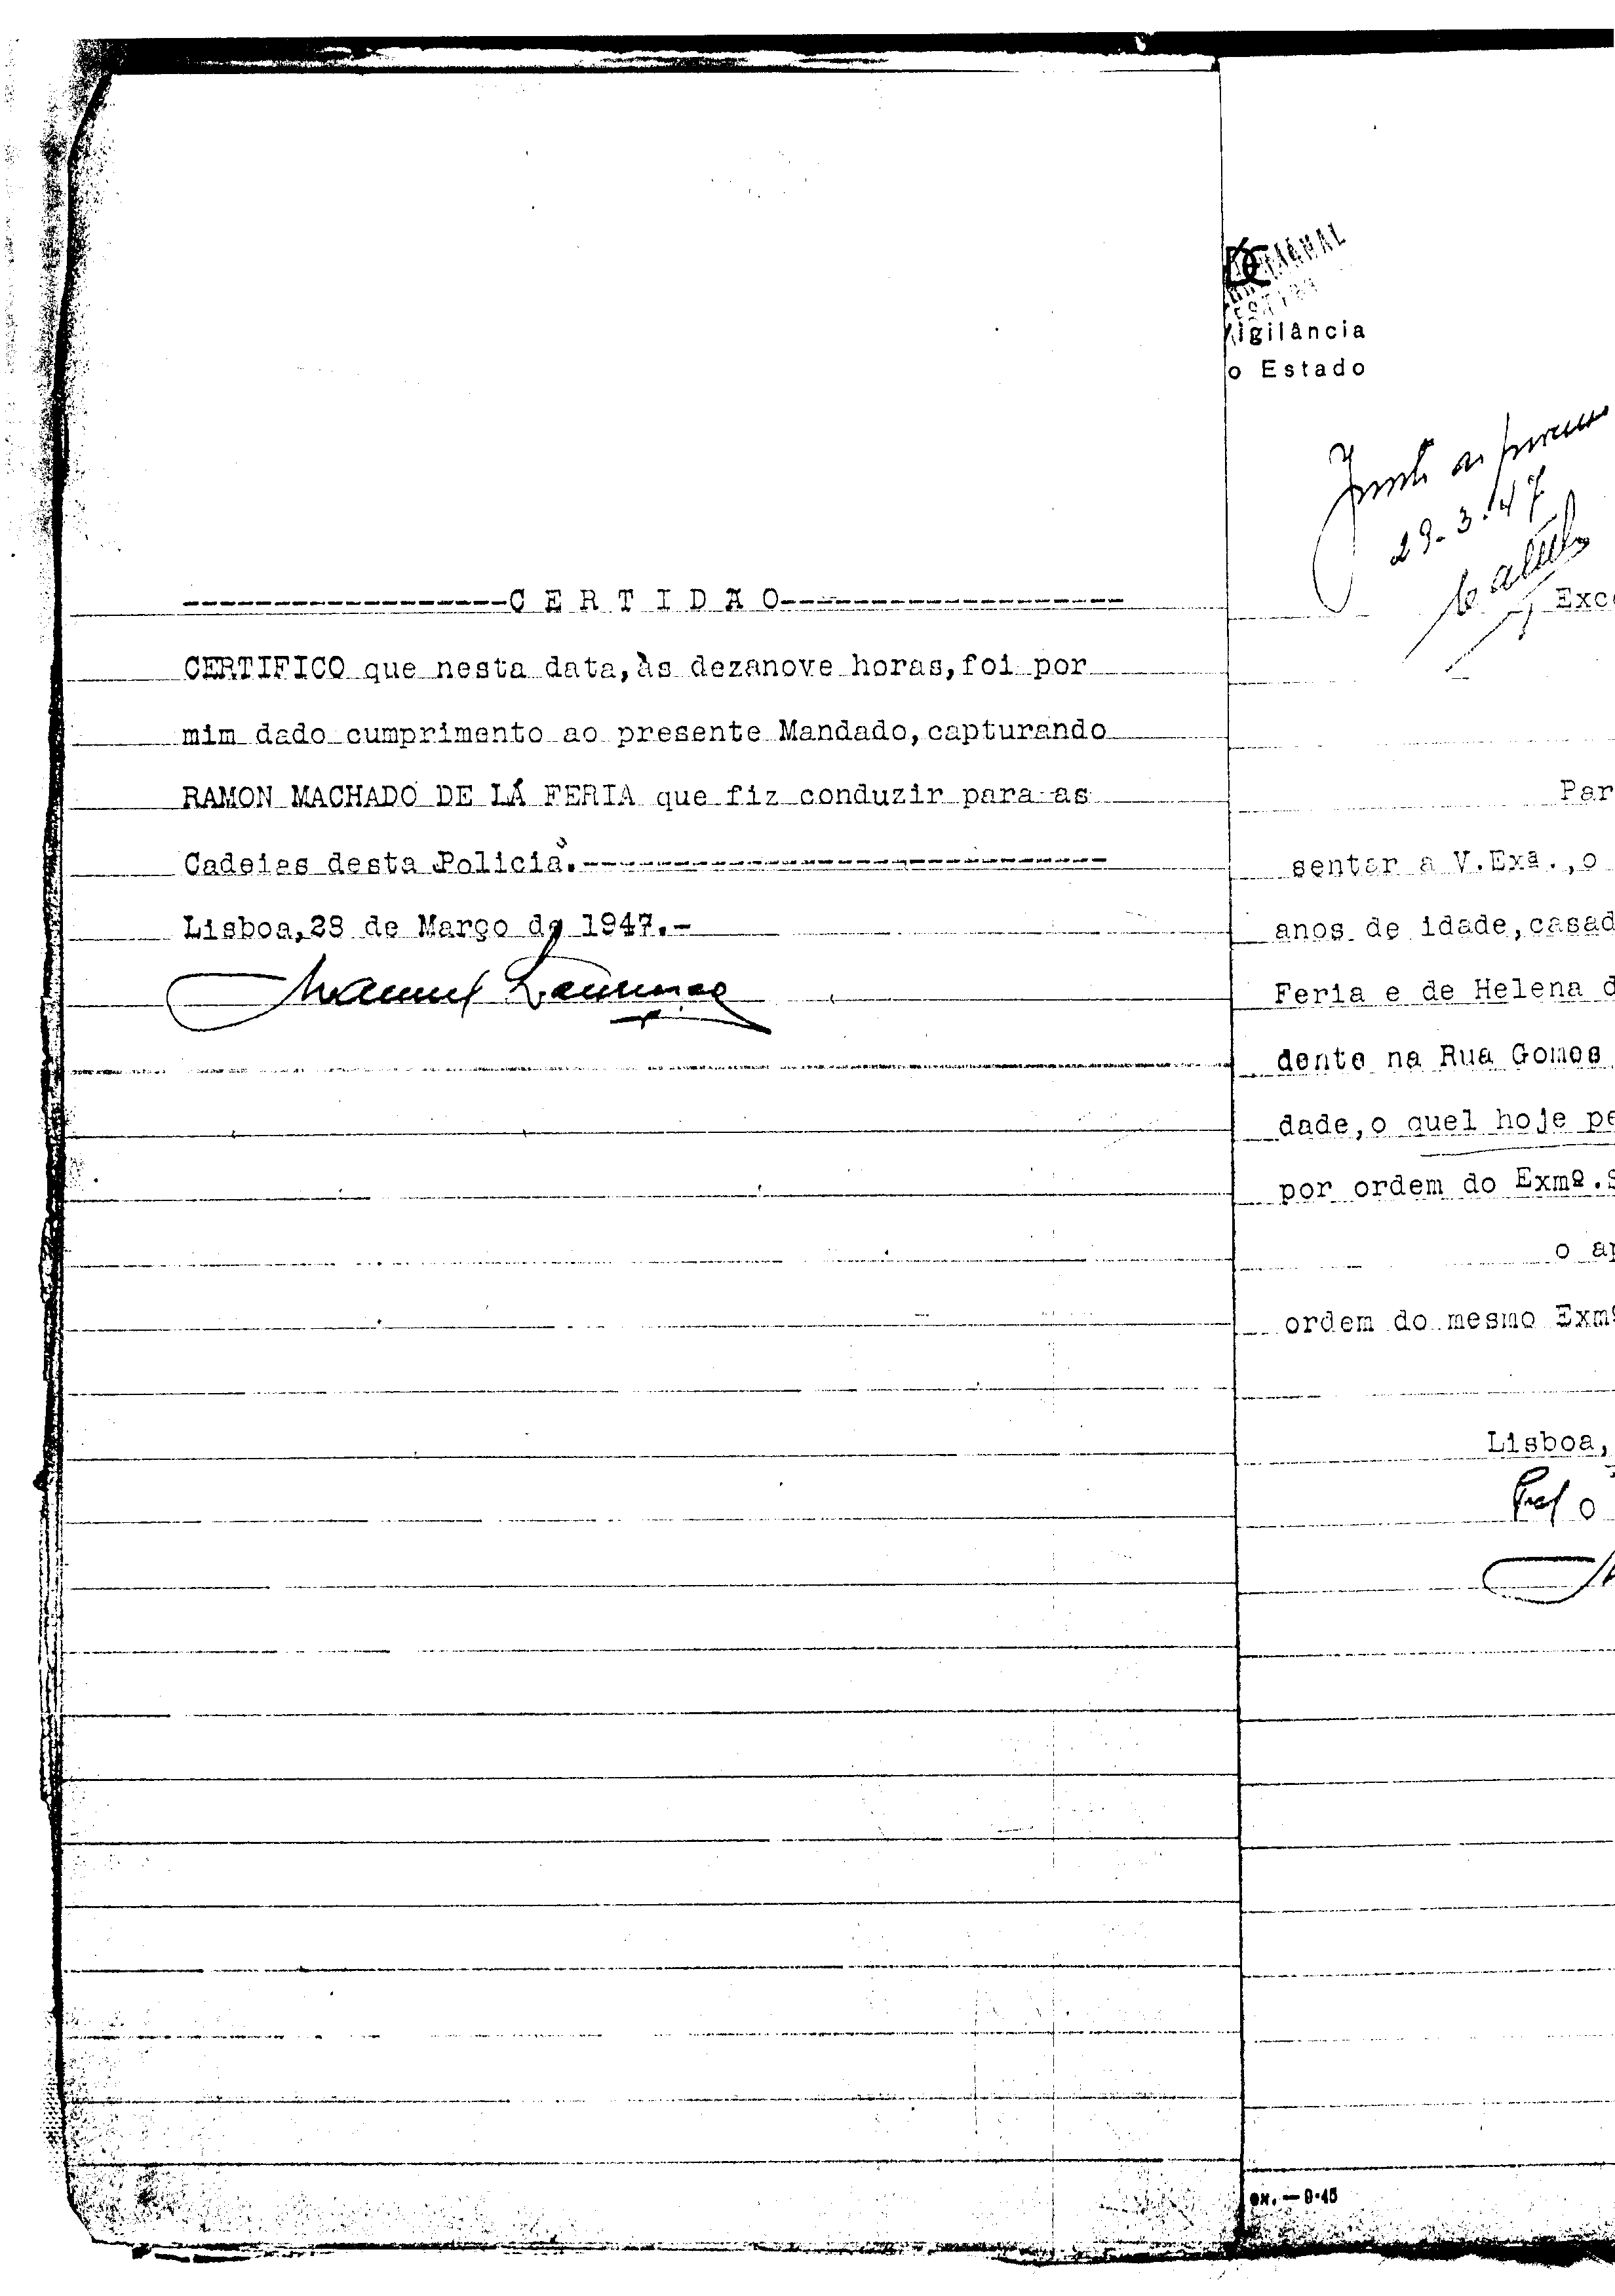 ------------------C E R T I D Ã O-------------------
CERTIFICO que nesta data,às dezanove horas,foi por
mim dado cumprimento ao presente Mandado,capturando
RAMON MACHADO DE LÁ FERIA que fiz conduzir para as
Cadeias desta Policia.-----------------------------
Lisboa,28 de Março de 1947.-
Manuel
igilância
o Estado
Junte ao
29-3-47
Exc
Par
sentar a V.Exª.,o
anos de idade,casad
Feria e de Helena d
dente na Rua Gomes
dade,o quel hoje pe
por ordem do Exmº.S
o ap
ordem do mesmo Exmº
Lisboa,
o
ex. — 9-45